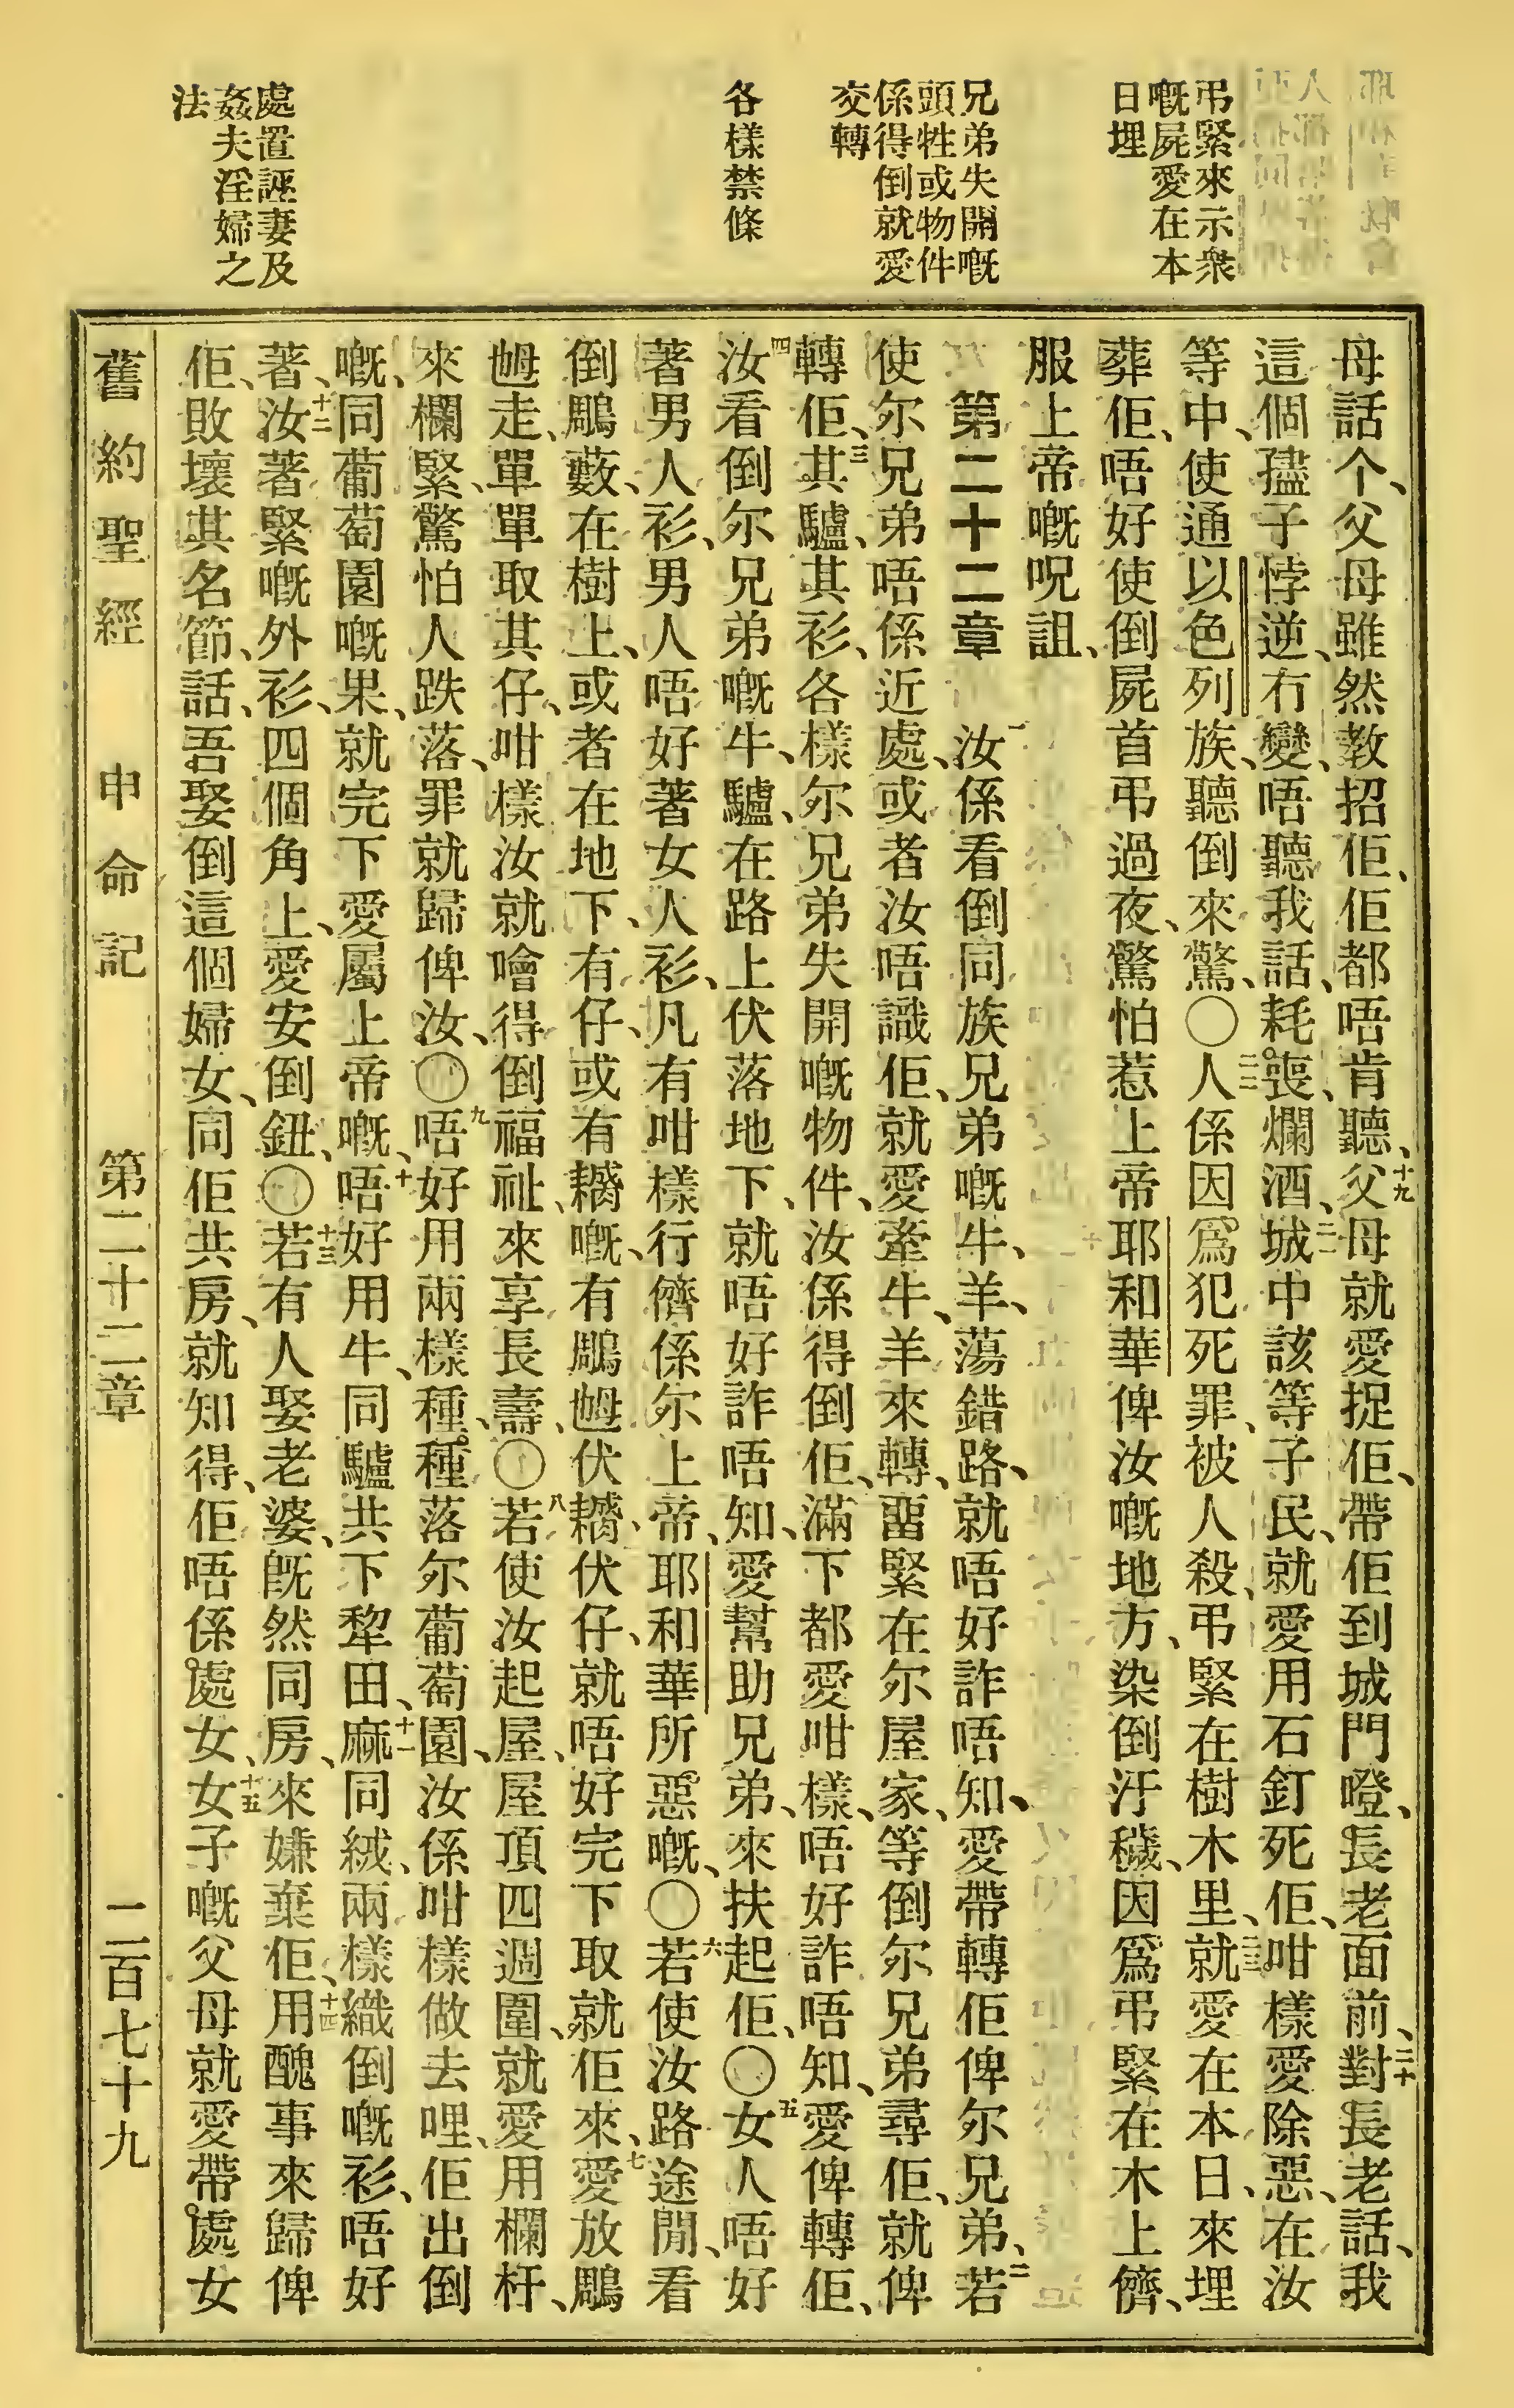 弔緊來示衆
嘅屍愛在本
日埋
兄弟失開嘅
頭牲或物件
係得倒就愛
交轉
各樣禁條
處置誣妻及
姦夫淫婦之
法
母話个、父母雖然教招佢、佢都唔肯聽、十九父母就愛捉佢、帶佢到城門嶝、長老面前、二十對長老話、我
這個𡥧子悖逆、冇變、唔聽我話、耗喪、爛酒、二一城中該等子民、就愛用石釘死佢、咁樣愛除惡、在汝
等中、使通以色列族、聽倒來驚、〇二二人係因爲犯死罪、被人殺、弔緊在樹木里、二三就愛在本日來埋
葬佢、唔好使倒屍首弔過夜、驚怕惹上帝耶和華俾汝嘅地方、染倒汙穢、因爲弔緊在木上儕、
服上帝嘅呪詛、
第二十二章 一汝係看倒同族兄弟嘅牛、羊、蕩錯路、就唔好詐唔知、愛帶轉佢俾尔兄弟、二若
使尔兄弟唔係近處、或者汝唔識佢、就愛牽牛、羊來轉、畱緊在尔屋家、等倒尔兄弟尋佢、就俾
轉佢、三其驢、其衫、各樣尔兄弟失開嘅物件、汝係得倒佢、滿下都愛咁樣、唔好詐唔知、愛俾轉佢、
四汝看倒尔兄弟嘅牛、驢、在路上伏落地下、就唔好詐唔知、愛幫助兄弟、來扶起佢、〇五女人唔好
著男人衫、男人唔好著女人衫、凡有咁樣行儕係尔上帝、耶和華所惡嘅、〇六若使汝路途閒、看
倒鵰藪、在樹上、或者在地下、有仔、或有䅻嘅、有鵰乸伏䅻、伏仔、就唔好完下取就佢來、七愛放鵰
乸走、單單取其仔、咁樣汝就噲得倒福祉、來享長壽、〇八若使汝起屋、屋頂四週圍、就愛用欄杆、
來欄緊、驚怕人跌落、罪就歸俾汝、〇九唔好用兩樣種、種落尔葡萄園、汝係咁樣做去哩、佢出倒
嘅、同葡萄園嘅果、就完下愛屬上帝嘅、十唔好用牛、同驢共下犂田、十一麻同絨、兩樣織倒嘅衫、唔好
著、十二汝著緊嘅外衫、四個角上、愛安倒鈕、〇十三若有人娶老婆、旣然同房、來嫌棄佢、十四用醜事來歸俾
佢、敗壞其名節、話、吾娶倒這個婦女、同佢共房、就知得、佢唔係處女、十五女子嘅父母就愛帶處女
舊約聖經 申命記 第二十二章 二百七十九